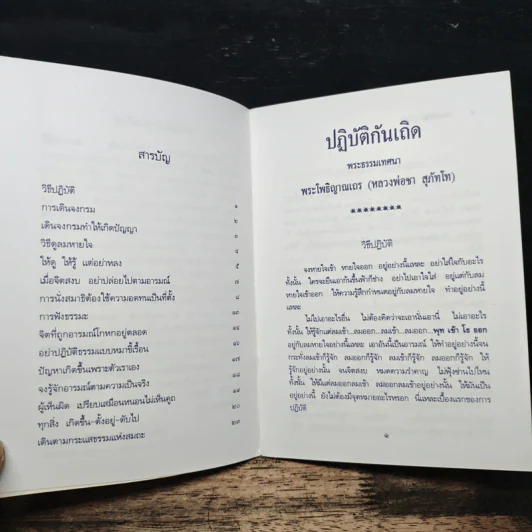 สารบัญ
วิธีปฏิบัติ
การเดินจงกรม ๑
เดินจงกรมทำให้เกิดปัญญา ๒
วิธีดูลมหายใจ ๓
ให้ดู ให้รู้ แต่อย่าหลง ๕
เมื่อจิตสงบ อย่าปล่อยไปตามอารมณ์ ๗
การนั่งสมาธิต้องใช้ความอดทนเป็นที่ตั้ง ๘
การฟังธรรมะ
จิตที่ถูกอารมณ์โกหกอยู่ตลอด
อย่าปฏิบัติธรรมแบบหมาขี้เรื้อน
ปัญหาเกิดขึ้นเพราะตัวเราเอง
จงรู้จักอารมณ์ตามความเป็นจริง
ผู้เห็นผิด เปรียบเสมือนหนอนไม่เห็นคูถ
ทุกสิ่ง เกิดขึ้น-ตั้งอยู่-ดับไป
เดินตามกระแสธรรมแห่งสมถะ
ปฏิบัติกันเถิด
พระธรรมเทศนา
พระโพธิญาณเถร (หลวงพ่อชา สุภัทโท)
********
วิธีปฏิบัติ
จงหายใจเข้า หายใจออก อยู่อย่างนี้แหละ อย่าใส่ใจกับอะไร
ทั้งนั้น ใครจะยืนเอาก้นขึ้นฟ้าก็ช่าง อย่าไปเอาใจใส่ อยู่แต่กับลม
หายใจเข้าออก ให้ความรู้สึกกำหนดอยู่กับลมหายใจ ทำอยู่อย่างนี้
แหละ
ไม่ไปเอาอะไรอื่น ไม่ต้องคิดว่าจะเอานั่นเอานี่ ไม่เอาอะไร
ทั้งนั้น ให้รู้จักแต่ลมเข้า...ลมออก...ลมเข้า...ลมออก...พุท เข้า โธ ออก
อยู่กับลมหายใจอย่างนี้แหละ เอาอันนี้เป็นอารมณ์ ให้ทำอยู่อย่างนี้จน
กระทั่งลมเข้าก็รู้จัก ลมออกก็รู้จัก ลมเข้าก็รู้จัก ลมออกก็รู้จัก ให้
รู้จักอยู่อย่างนั้น จนจิตสงบ หมดความรำคาญ ไม่ฟุ้งซ่านไปไหน
ทั้งนั้น ให้มีแต่ลมออกลมเข้า ลมออกลมเข้าอยู่อย่างนั้น ให้มันเป็น
อยู่อย่างนี้ ยังไม่ต้องมีจุดหมายอะไรหรอก นี่แหละเบื้องแรกของการ
ปฏิบัติ
๑